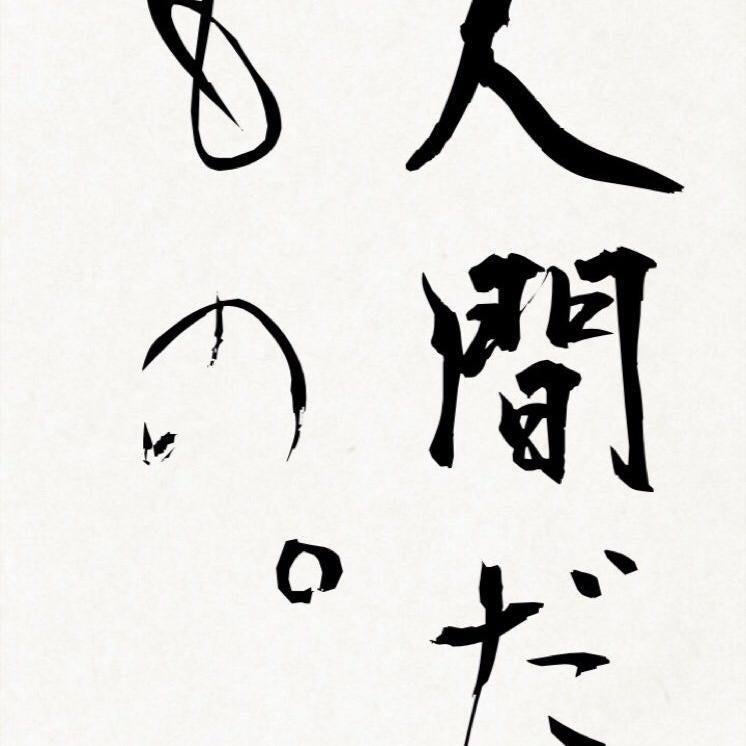 人間だ
もの。